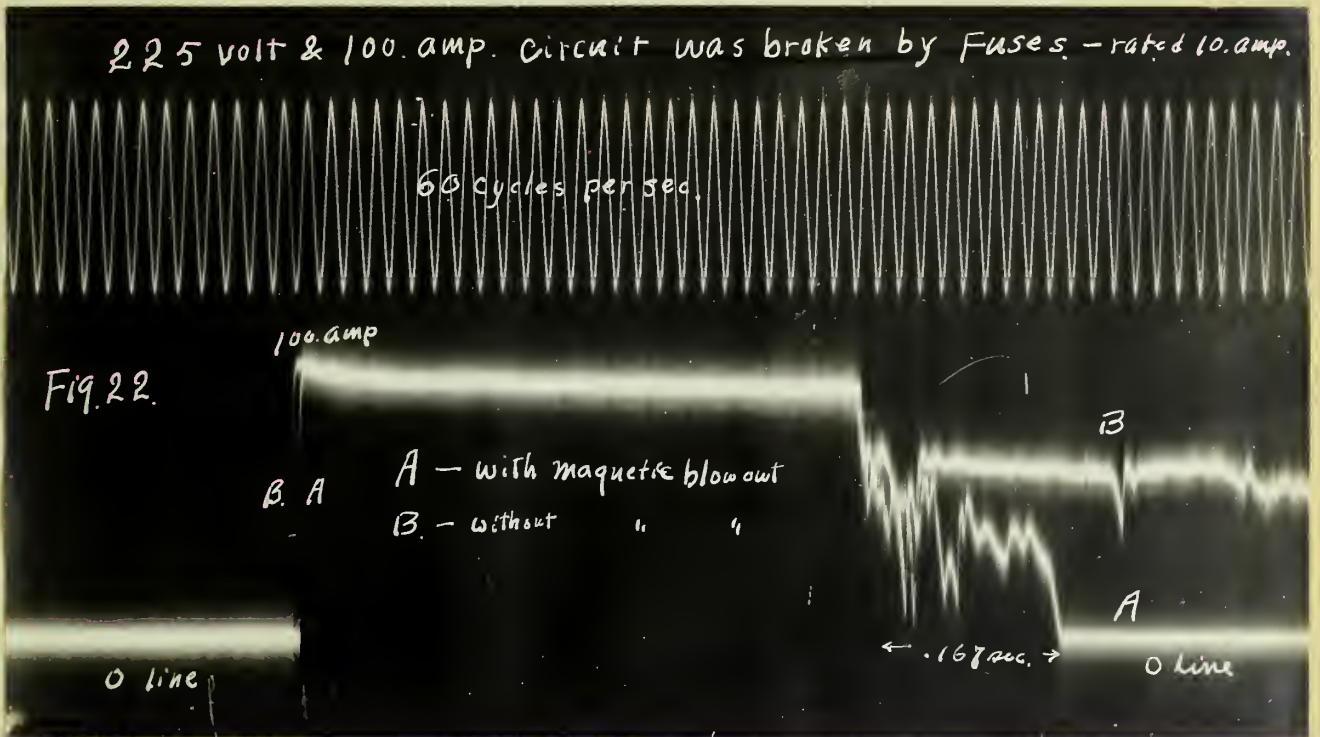 225 volt & 100. amp. circuit was broken by Fuses. - rated 10. amp.
60 cycles per sec.
100. amp
Fig. 22.
B
A - with magnetic blowout
B. A
B. - without " "
A
← .167 sec. →
0 line
0 line